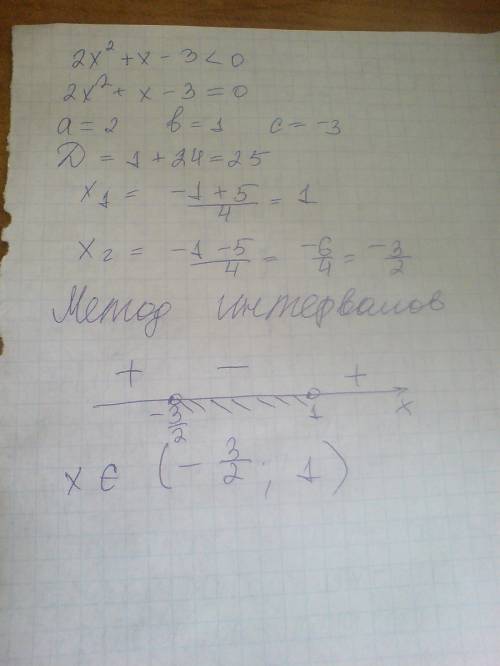 2x² + x - 3 < 0
2x² + x - 3 = 0
a = 2 b = 1 c = -3
D = 1 + 24 = 25
x₁ = (-1 + 5)/4 = 1
x₂ = (-1 - 5)/4 = -6/4 = -3/2
Метод интервалов
+ - +
-3/2 1 x
x ∈ (-3/2; 1)